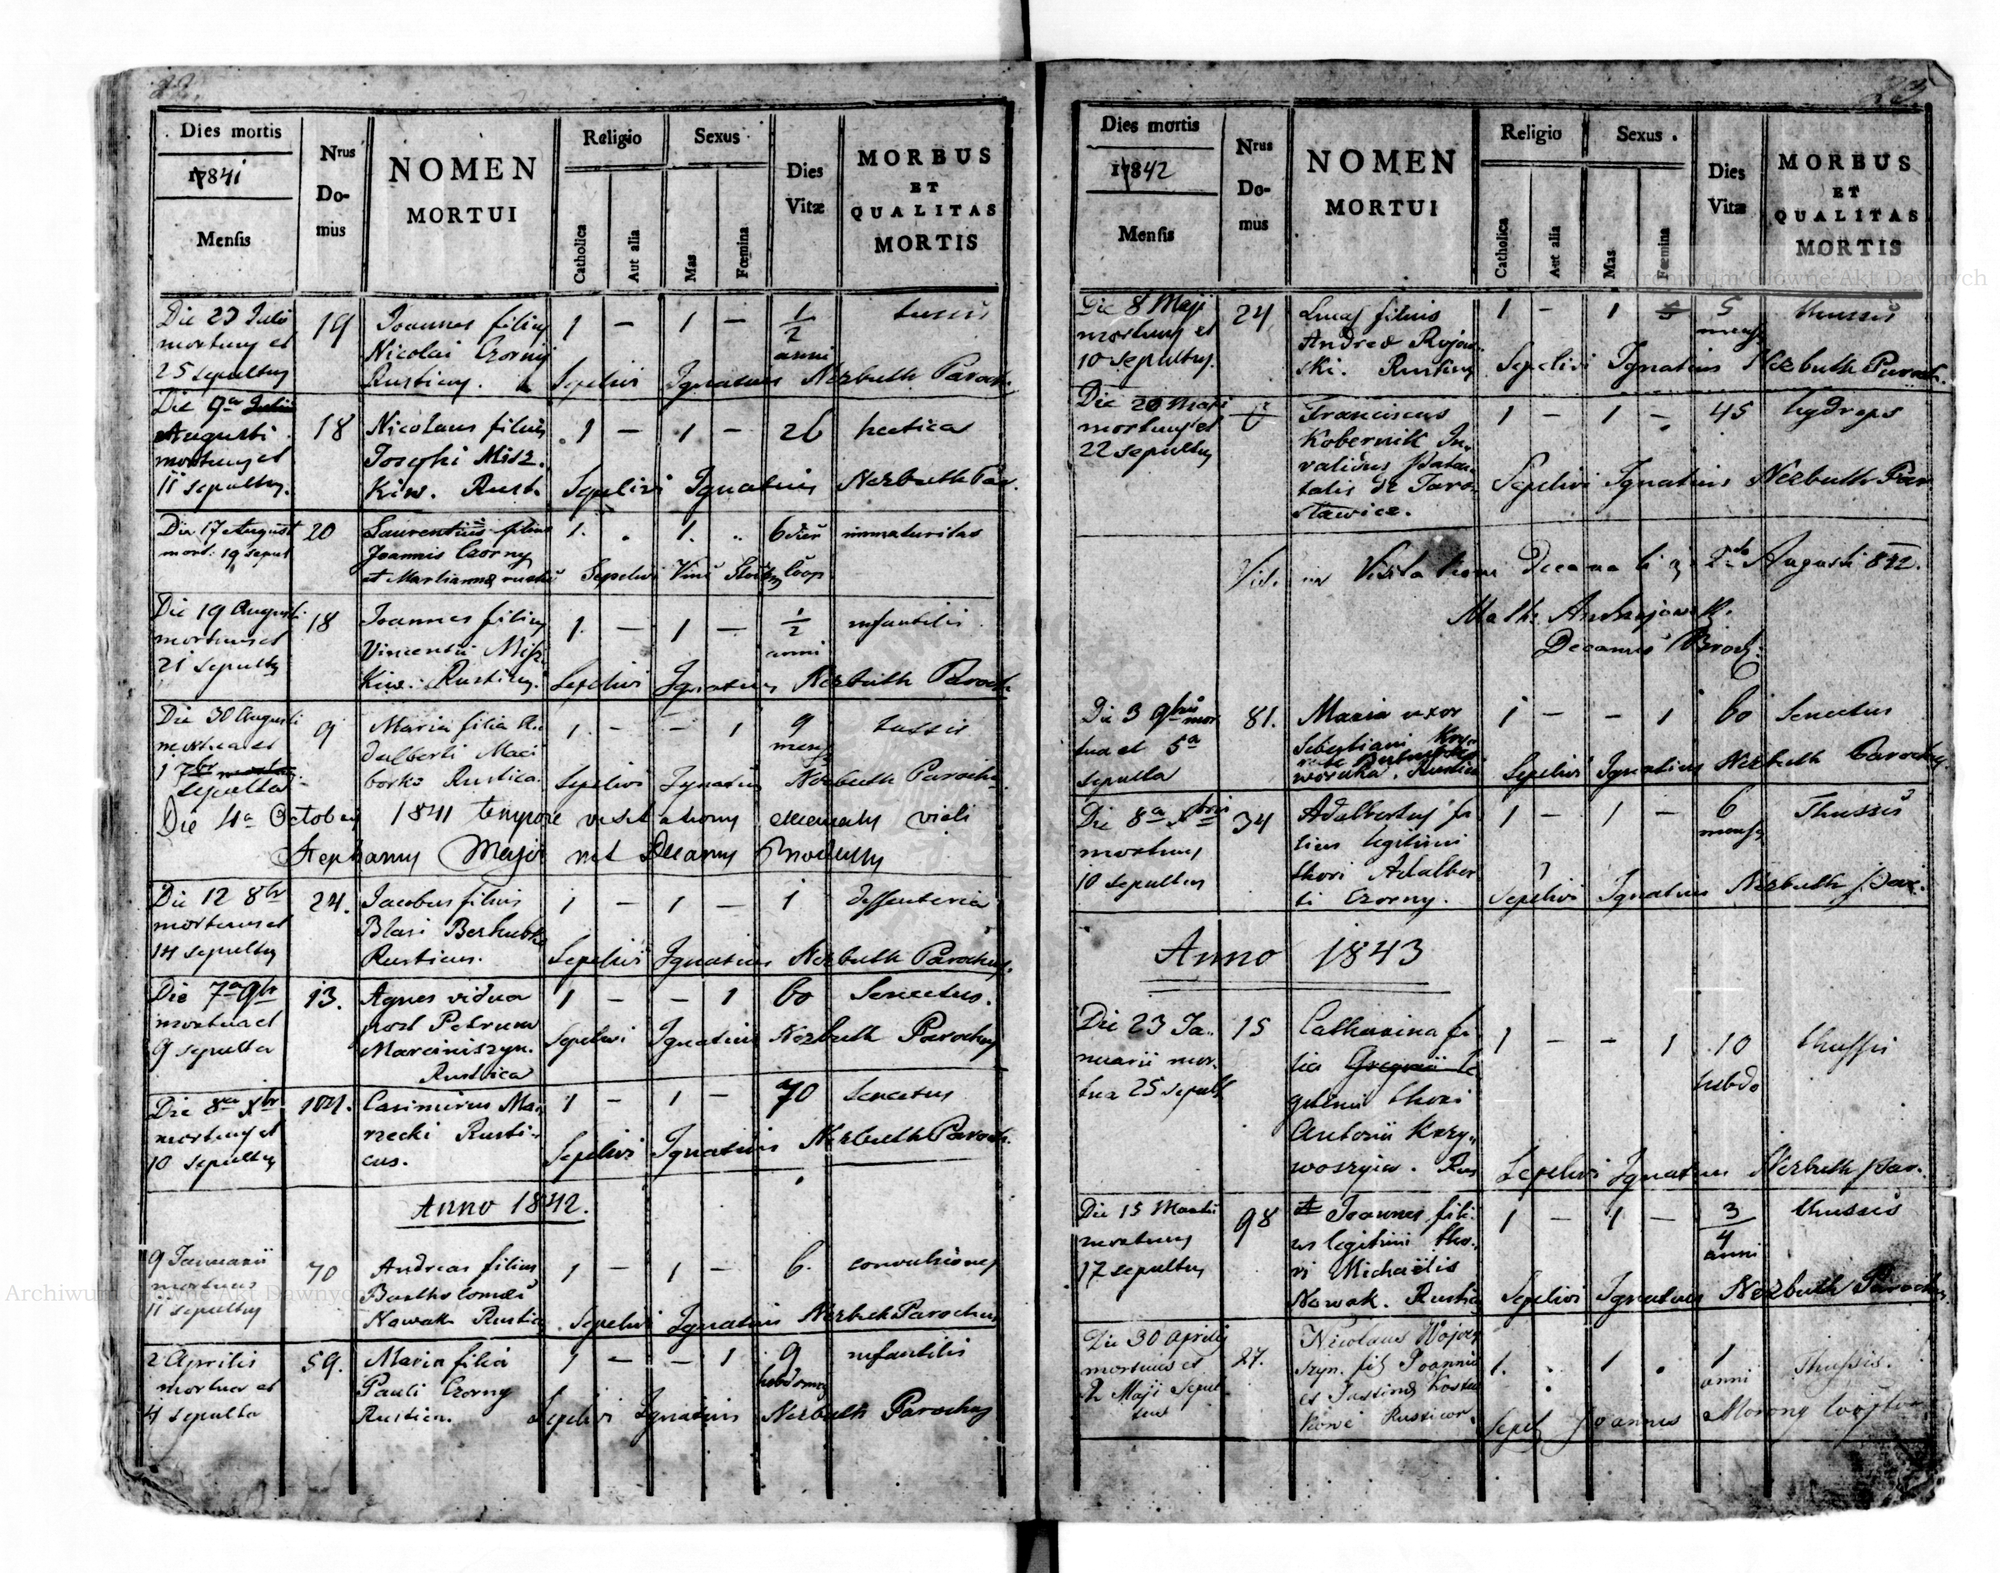 22.
Dies mortis
1841
Mensis
Nrus Do-mus
NOMEN
MORTUI
Religio
Catholica
Aut alia
Sexus
Mas
Fœmina
Dies
Vitæ
MORBUS
ET
QUALITAS
MORTIS
Die 23 Julii 19 Joannes filius 1 – 1 – 1/2 tussis
mortuus et Nicolai Czorny anni
25 sepultus Rusticus. Sepelivi Ignatius Nerbuth Paroch.
Die 9a Julii
Augusti 18 Nicolaus filius 1 – 1 – 26 hectica
mortuus et Josephi Misz-
11 sepultus. kiw. Rust. Sepelivi Ignatius Nerbuth Par.
Die 17 August 20 Laurentius filius 1. . 1. .. 6 dier immaturitas
mort. 19 sepult Joannis Czorny
et Marianna Sepelivi
Die 19 Augusti 18 Joannes filius 1. – 1 – 1/2 infantilis
mortuus et Vincentii Misz- anni
21 sepultus kiw. Rusticus. Sepelivi Ignatius Nerbuth Paroch.
Die 30 Augusti 9 Maria filia A- 1. – – 1 9 tussis
mortua et dalberti Maci mens
1 7br borko Rustica. Sepelivi Ignatius Nerbuth Parochus
sepulta
Die 4a Octobris 1841 tempore visitationis
Stephanus Decanus
Die 12 8br 24. Jacobus filius 1 – 1 – 1 dissenteria
mortuus et Blasi
14 sepultus Rusticus. Sepelivi Ignatius Nerbuth Parochus.
Die 7a 9br 13. Agnes vidua 1 – – 1 60 Senectus.
mortua et post Petrum
9 sepulta Marciniszyn. Sepelivi Ignatius Nerbuth Parochus
Rustica
Die 8va Xbr 101. Casimirus Mar 1 – 1 – 70 Senectus
mortuus et rzecki Rusti-
10 sepultus cus. Sepelivi Ignatius Nerbuth Paroch.
Anno 1842.
9 Januarii 70 Andreas filius 1 – 1 – 6. convulsiones
mortuus Bartholomæi
11 sepultus Nowak Rustic Sepelivi Ignatius Nerbuth Parochus
2 Aprilis 59. Maria filia 1 – – 1 9 infantilis
mortua et Pauli Czorny hebdomas
4 sepulta Rustica. Sepelivi Ignatius Nerbuth Parochus
23.
Dies mortis
1842
Mensis
Nrus Do-mus
NOMEN
MORTUI
Religio
Catholica
Aut alia
Sexus.
Mas
Fœmina
Dies
Vitæ
MORBUS
ET
QUALITAS
MORTIS
Die 8 Maji 24 Lucas filius 1 – 1 5 thussis
mortuus et Andreæ Rojow- mens
10 sepultus. ski. Rusticus Sepelivi Ignatius Nerbuth Paroch.
Die 20 Maji Franciscus 1 – 1 – 45 hydrops
mortuus et Kobernik In-
22 sepultus validus
de Taro- Sepelivi Ignatius Nerbuth Par
stawice.
Vid. in Visitatione Decanali 2da Augusti 842.
Math.
Decanus Brod.
Die 3 9bris mor 81. Maria uxor 1 – – 1 60 Senectus
tua et 5a Sebestiani
sepulta Sepelivi Ignatius Nerbuth Parochus.
Die 8a Xbris 34 Adalbertus fi 1 – 1 – 6 Thussis
mortuus lius legitimi mensis
10 sepultus thori Adalber
ti Czorny. Sepelivi Ignatius Nerbuth Par.
Anno 1843
Die 23 Ja- 15 Catharina fi- 1 – – 1 10 thussis
nuarii mor- lia le hebdo
tua 25 sepult gitimi thori
Antonii Krzy-
woszyia. Rus Sepelivi Ignatius Nerbuth Par.
Die 15 Martii 98 Joannes fili- 1 – 1 – 3/4 thussis
mortuus us legitimi tho- anni
17 sepultus ri Michaëlis
Nowak. Rustic Sepelivi Ignatius Nerbuth Parochus
Die 30 Aprilis 27. Nicolaus Wojci 1. . 1 . 1 Thussis.
mortuus et szyn. fil Joannis anni
2 Maji Sepul- et Justina
tus Sepel Joannes
Archiwum Główne Akt Dawnych
Archiwum Główne Akt Dawnych